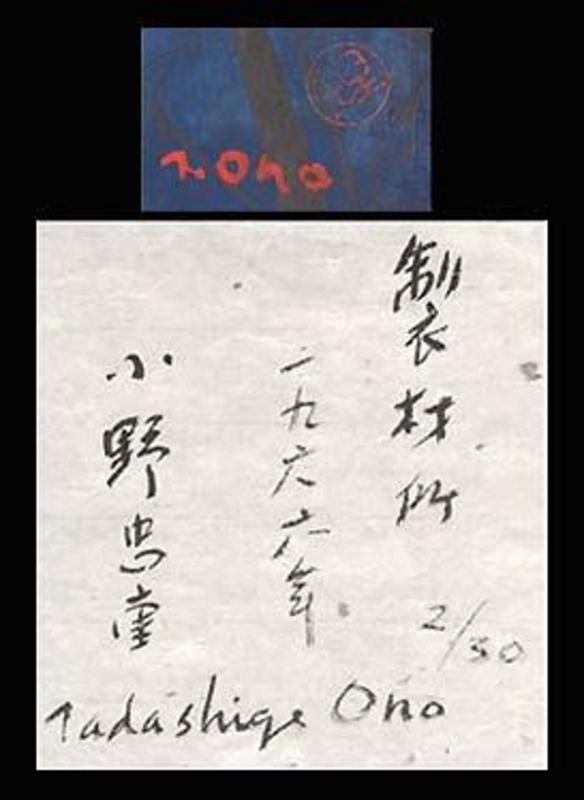 TOno
製材所
一九六六年
小野忠重
2/30
Tadashige Ono